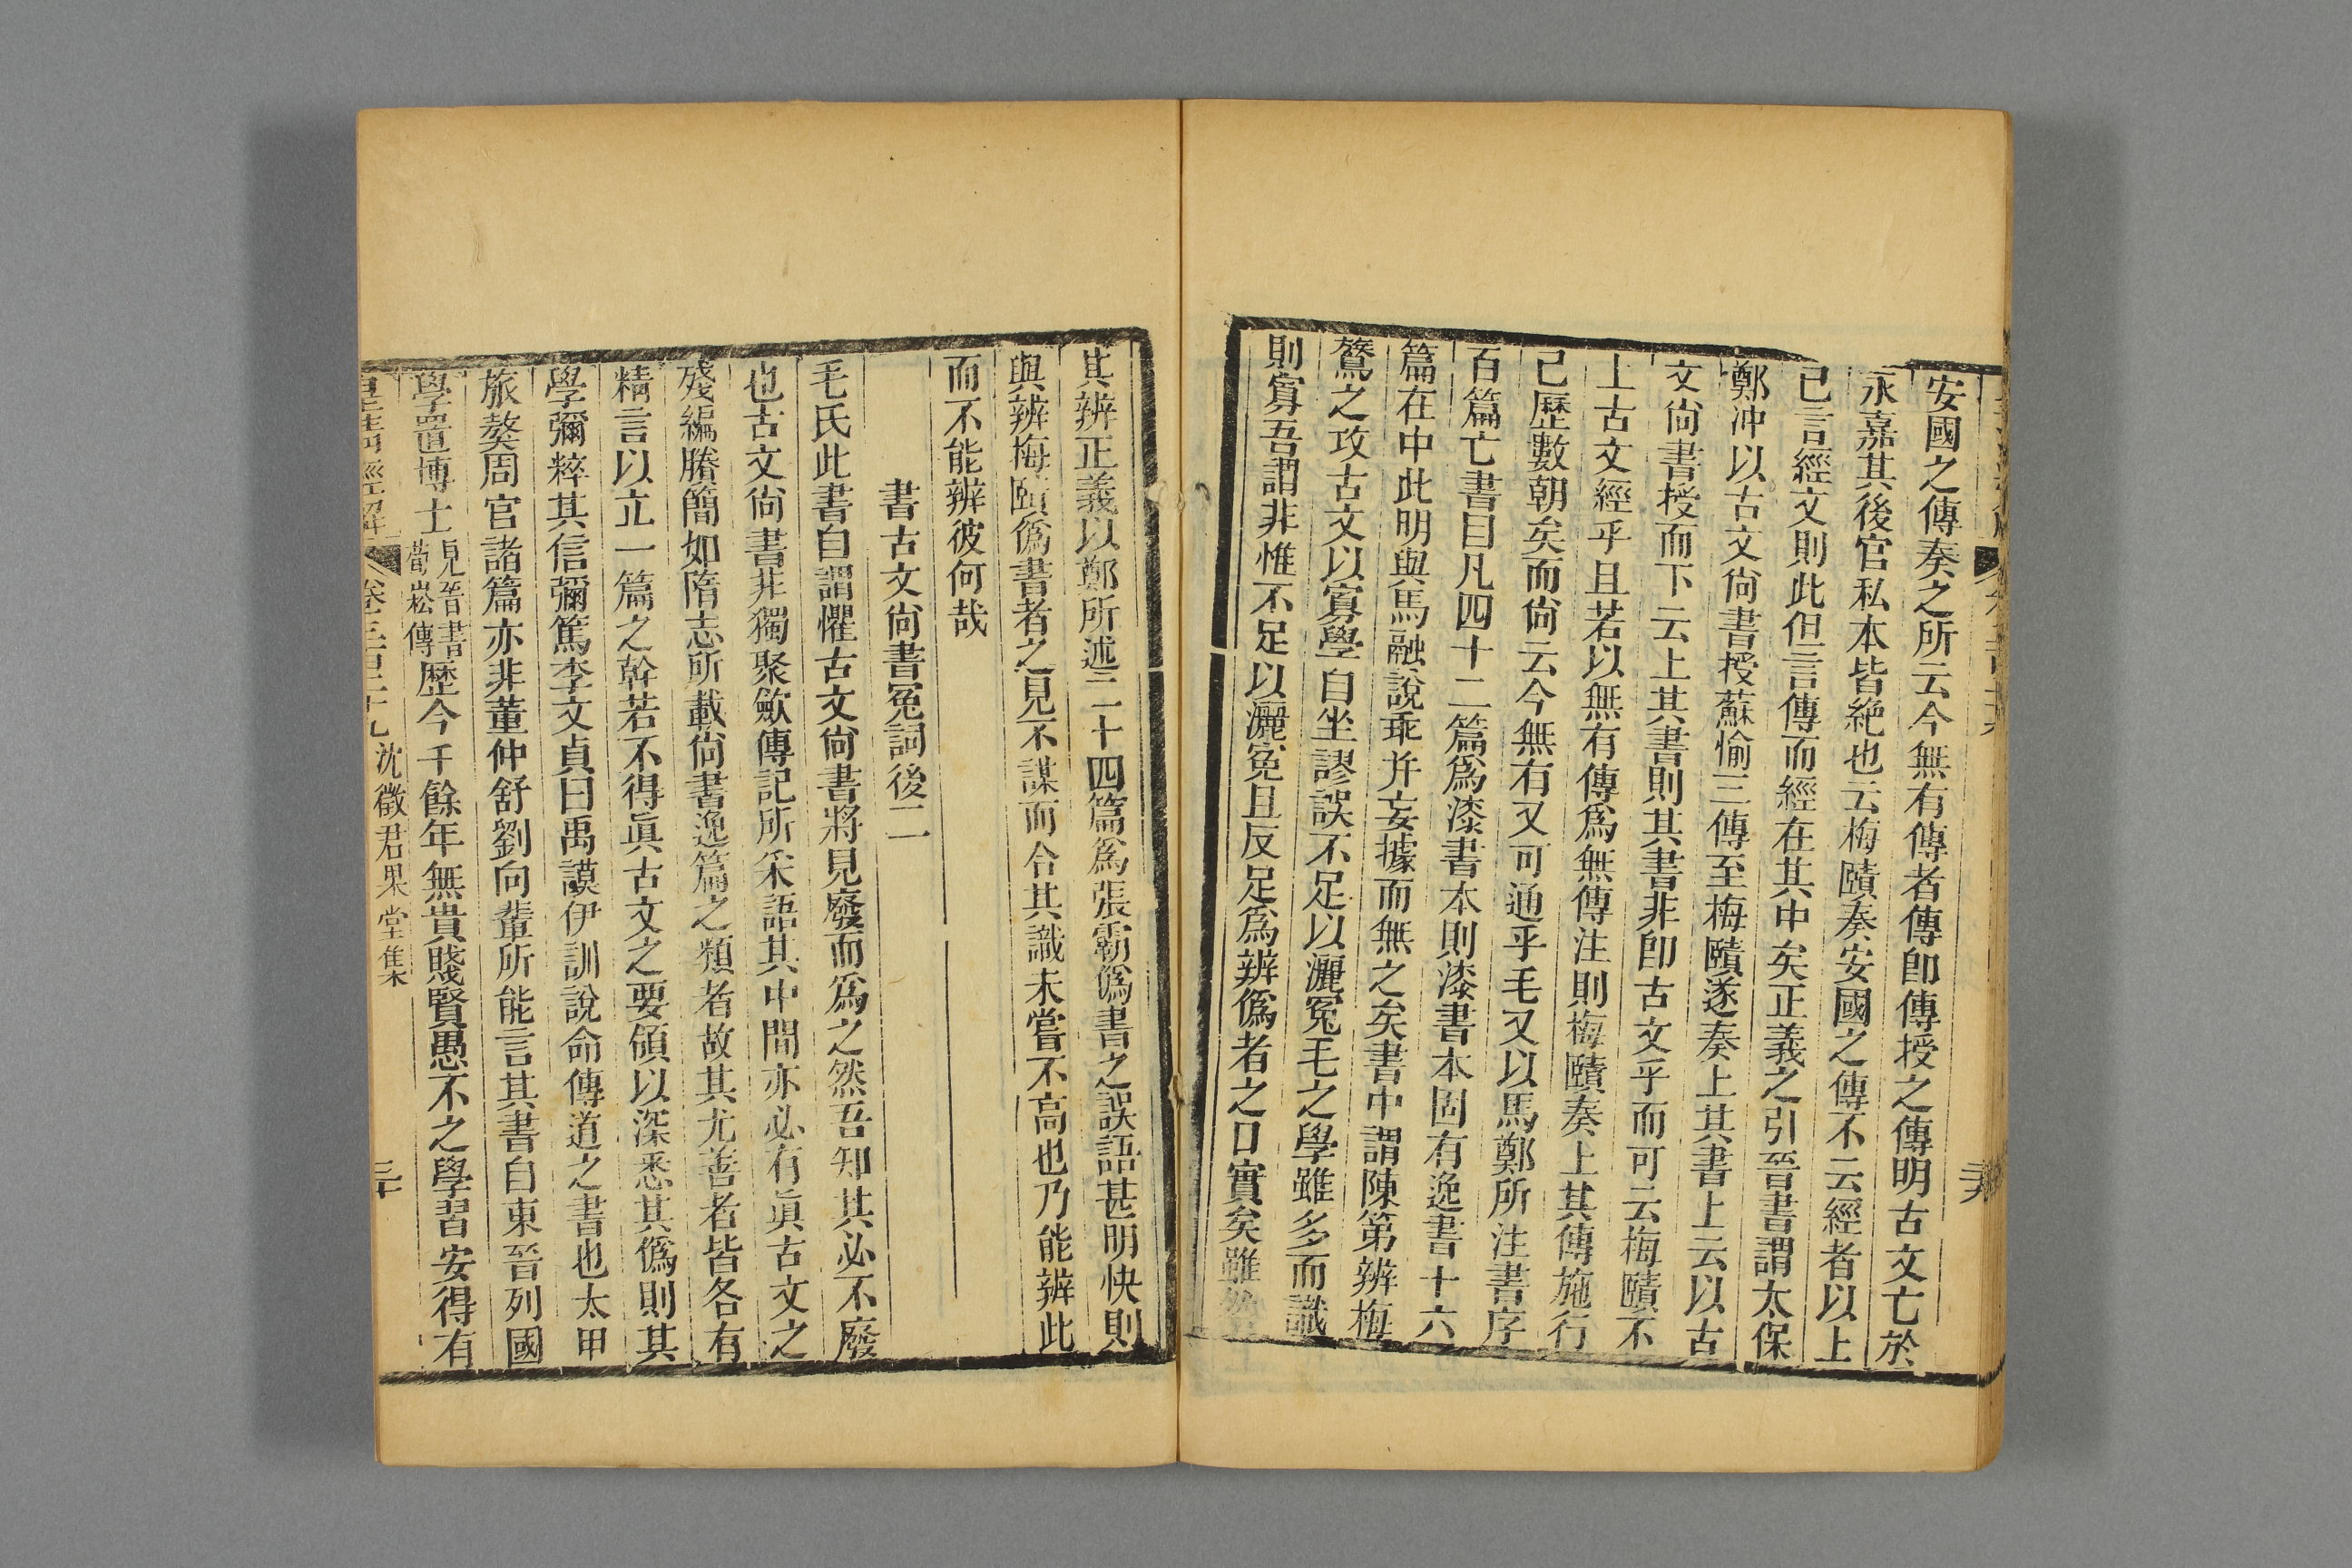 安國之傳奏之所云今無有傳者傳卽傳授之傳明古文亡於
永嘉其後官私本皆絶也云梅賾奏安國之傳不云經者以上
已言經文則此但言傳而經在其中矣正義之引晉書謂太保
鄭沖以古文尙書授蘇愉三傳至梅賾遂奏上其書上云以古
文尙書授而下云上其書則其書非卽古文乎而可云梅賾不
上古文經乎且若以無有傳爲無傳注則梅賾奏上其傳施行
已歷數朝矣而尙云今無有又可通乎毛又以馬鄭所注書序
百篇亡書目凡四十二篇爲漆書本則漆書本固有逸書十六
篇在中此明與馬融說乖并妄據而無之矣書中謂陳第辨梅
鷟之攻古文以寡學自坐謬誤不足以灑冤毛之學雖多而識
則寡吾謂非惟不足以灑冤且反足爲辨僞者之口實矣雖然
其辨正義以鄭所述二十四篇爲張霸僞書之誤語甚明快則
與辨梅賾僞書者之見不謀而合其識未嘗不高也乃能辨此
而不能辨彼何哉
書古文尙書冤詞後二
毛氏此書自謂懼古文尙書將見廢而爲之然吾知其必不廢
也古文尙書非獨聚歛傳記所采語其中間亦必有眞古文之
殘編賸簡如隋志所載尙書逸篇之類者故其尤善者皆各有
精言以立一篇之幹若不得眞古文之要領以深悉其僞則其
學彌粹其信彌篤李文貞曰禹謨伊訓說命傳道之書也太甲
旅獒周官諸篇亦非董仲舒劉向輩所能言其書自東晉列國
學置博士見晉書荀崧傳歷今千餘年無貴賤賢愚不之學習安得有
皇清經解 卷三百二十九 沈徵君果堂集 三十